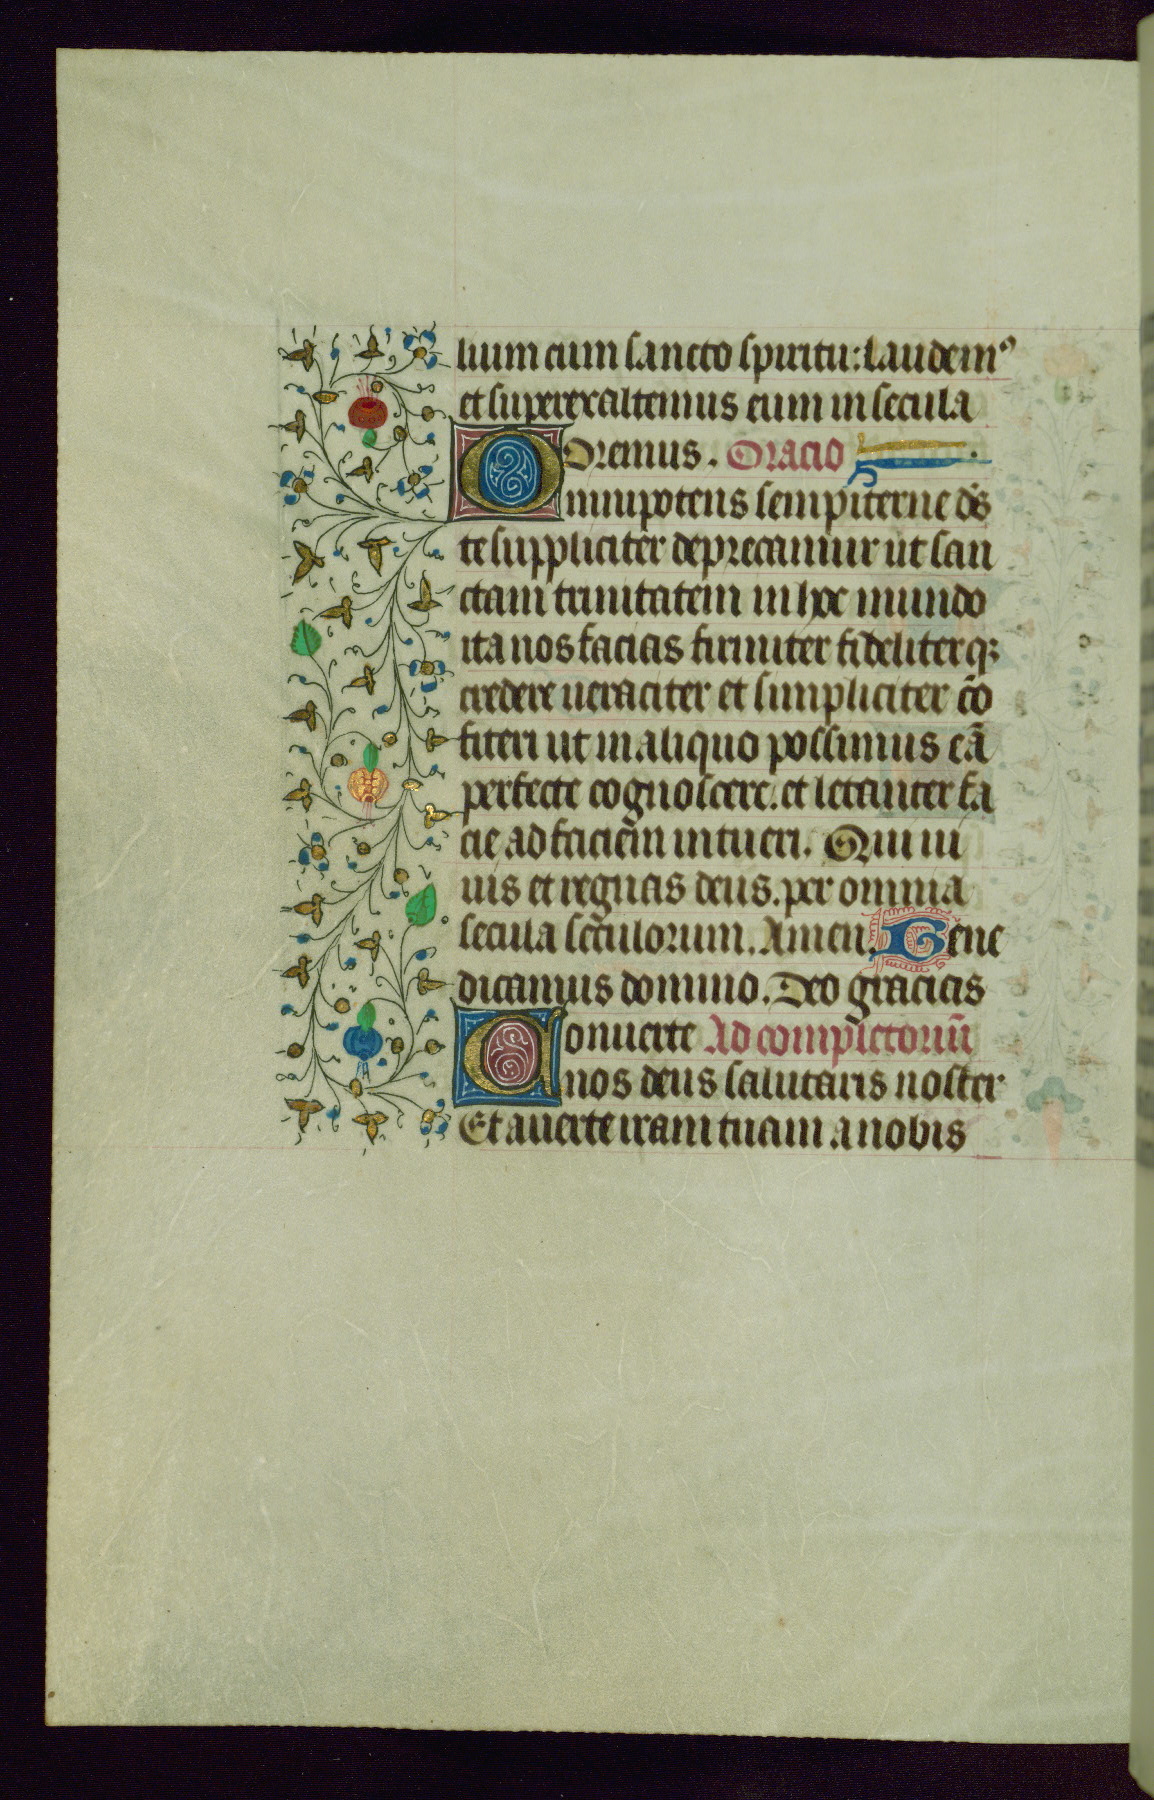 lium cum sancto spiritu: Laudemꝰ
et superexaltemus eum in secula
Oremus. Oracio
Omnipotens sempiterne ds̄
te suppliciter deprecamur ut san
ctam trinitatem in hoc mundo
ita nos facias firmiter fideliterqꝫ
credere ueraciter et simpliciter cō
fiteri ut in aliquo possimus eā
perfecte cognoscere. et letanter fa
cie ad faciem intueri. Qui ui
uis et regnas deus. per omnia
secula seculorum. Amen. Bene
dicamus domino. Deo gracias
Conuerte Ad completoriū
nos deus salutaris noster
Et auerte iram tuam a nobis